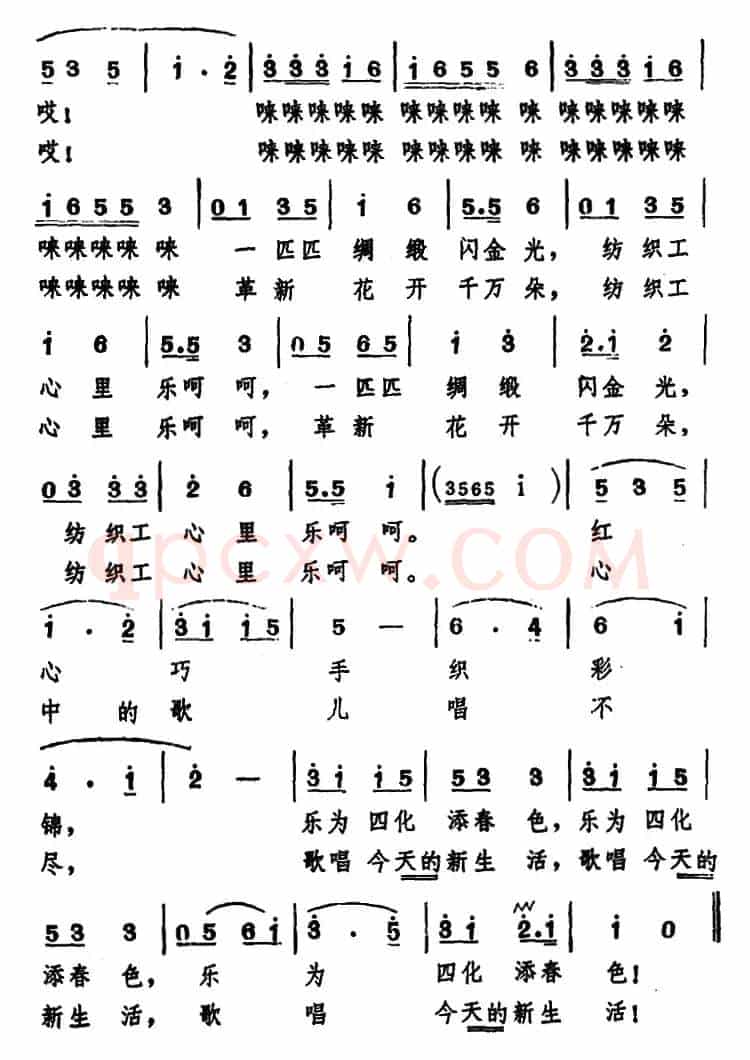 5 3 5 | i · 2 | 3 3 3 i 6 | i 6 5 5 6 | 3 3 3 i 6 |
哎! 唻唻唻唻唻 唻唻唻唻 唻 唻唻唻唻唻
哎! 唻唻唻唻唻 唻唻唻唻 唻 唻唻唻唻唻
i 6 5 5 3 | 0 1 3 5 | i 6 | 5.5 6 | 0 1 3 5 |
唻唻唻唻 唻 一匹匹 绸 缎 闪金光, 纺织工
唻唻唻唻 唻 革新 花 开 千万朵, 纺织工
i 6 | 5.5 3 | 0 5 6 5 | i 3 | 2.i 2 |
心 里 乐呵呵, 一匹匹 绸 缎 闪金光,
心 里 乐呵呵, 革新 花 开 千万朵,
0 3 3 3 | 2 6 | 5.5 i | (3565 i) | 5 3 5 |
纺织工 心 里 乐呵 呵。 红
纺织工 心 里 乐呵 呵。 心
qpcxw.COM
i · 2 | 3 i i 5 | 5 — | 6 · 4 | 6 i |
心 巧 手 织 彩
中 的歌 儿 唱 不
4 · i | 2 — | 3 i i 5 | 5 3 3 | 3 i i 5 |
锦, 乐为 四化 添春 色, 乐为 四化
尽, 歌唱 今天的 新生 活, 歌唱 今天的
5 3 3 | 0 5 6 i | 3 · 5 | 3 i 2.i | i 0 ‖
添春 色, 乐 为 四化 添春 色!
新生 活, 歌 唱 今天的新生 活!